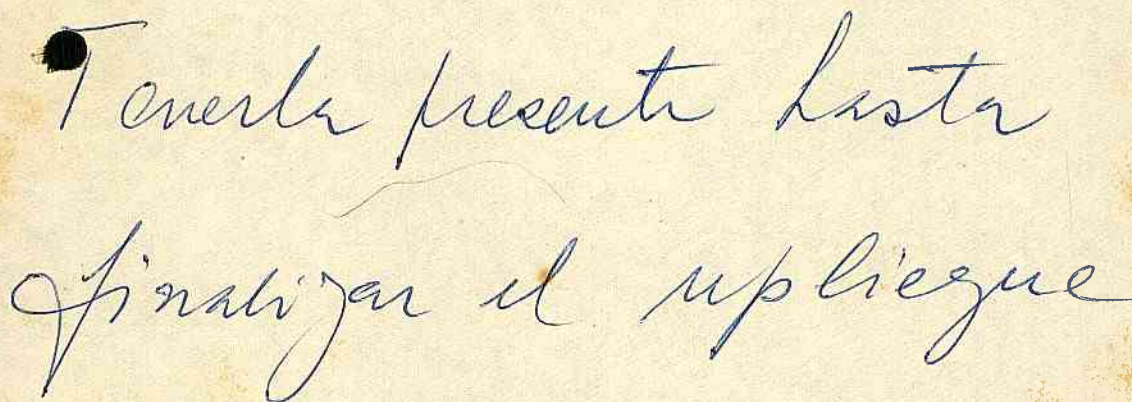 Tenerla presente hasta
finalizar el repliegue